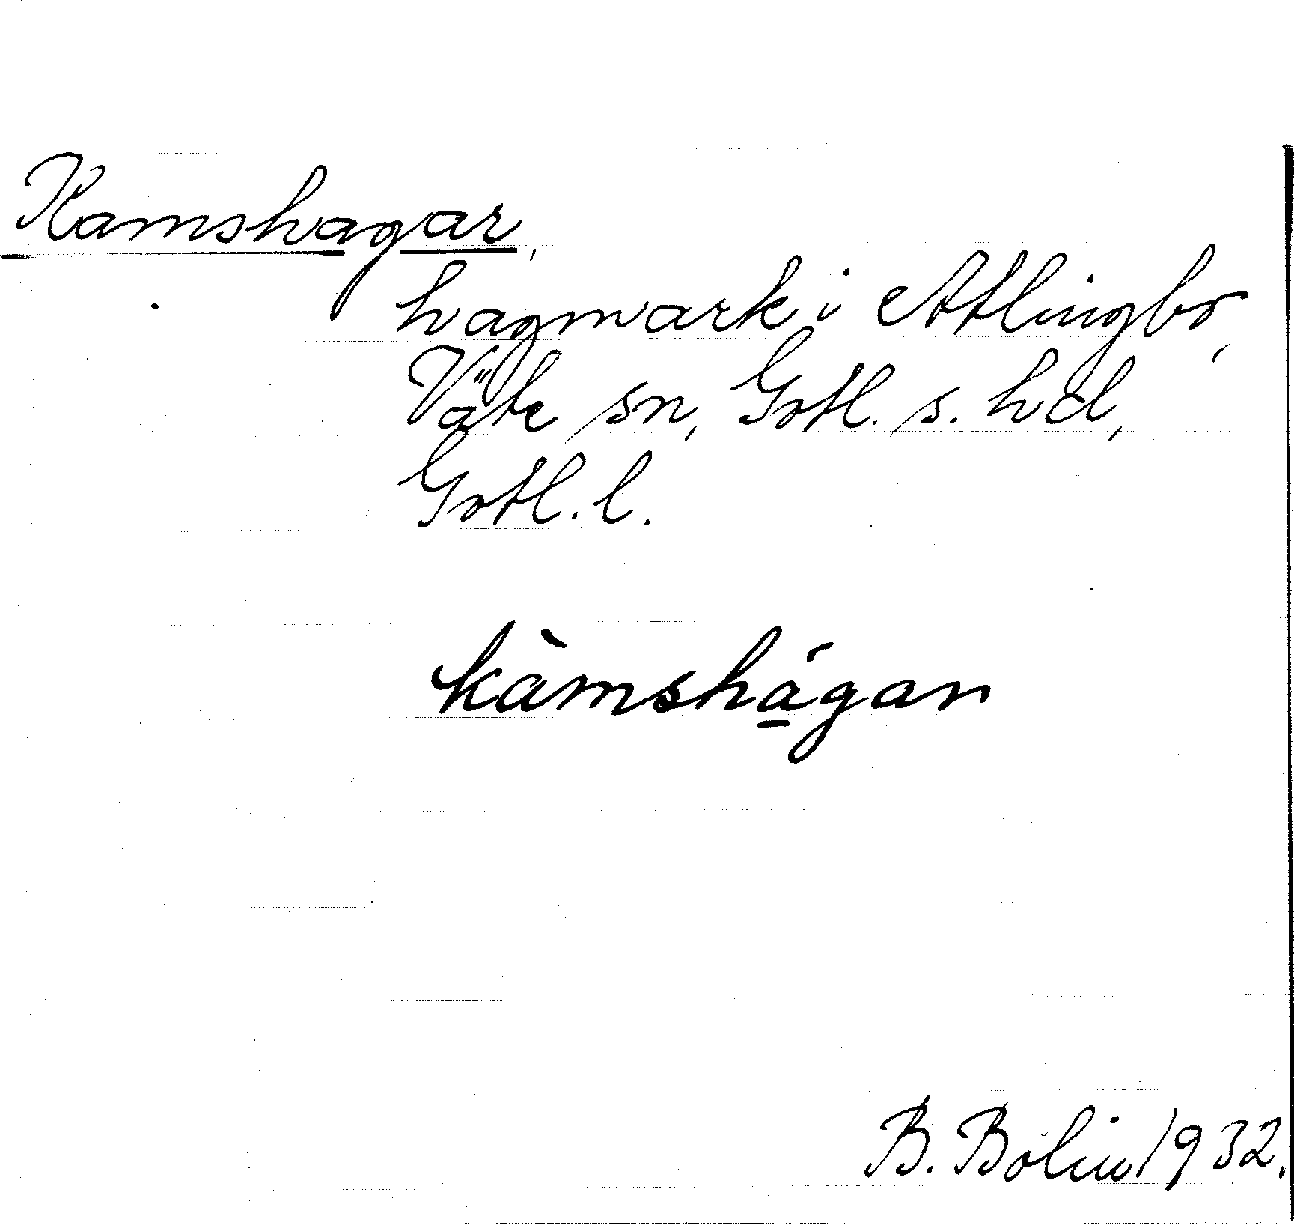 Kamshagar,
hagmark i Atlingbo,
Väte sn, Gotl. s. hd,
Gotl. l.
kàmshá̱gan
B. Bolin 1932.